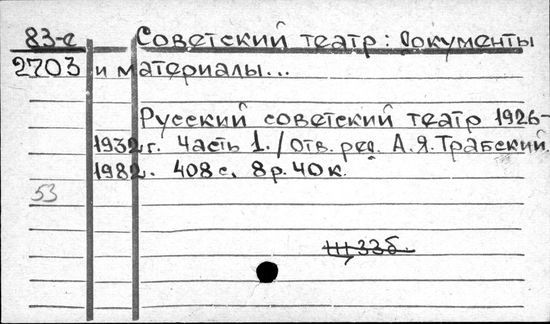 83-е Советский театр: Документы
2703 и материалы...
Русский советский театр 1926-
1932г. Часть 1. / Отв. ред. А.Я.Трабский.
1982. 408 с. 8 р. 40 к.
53
Щ33б.